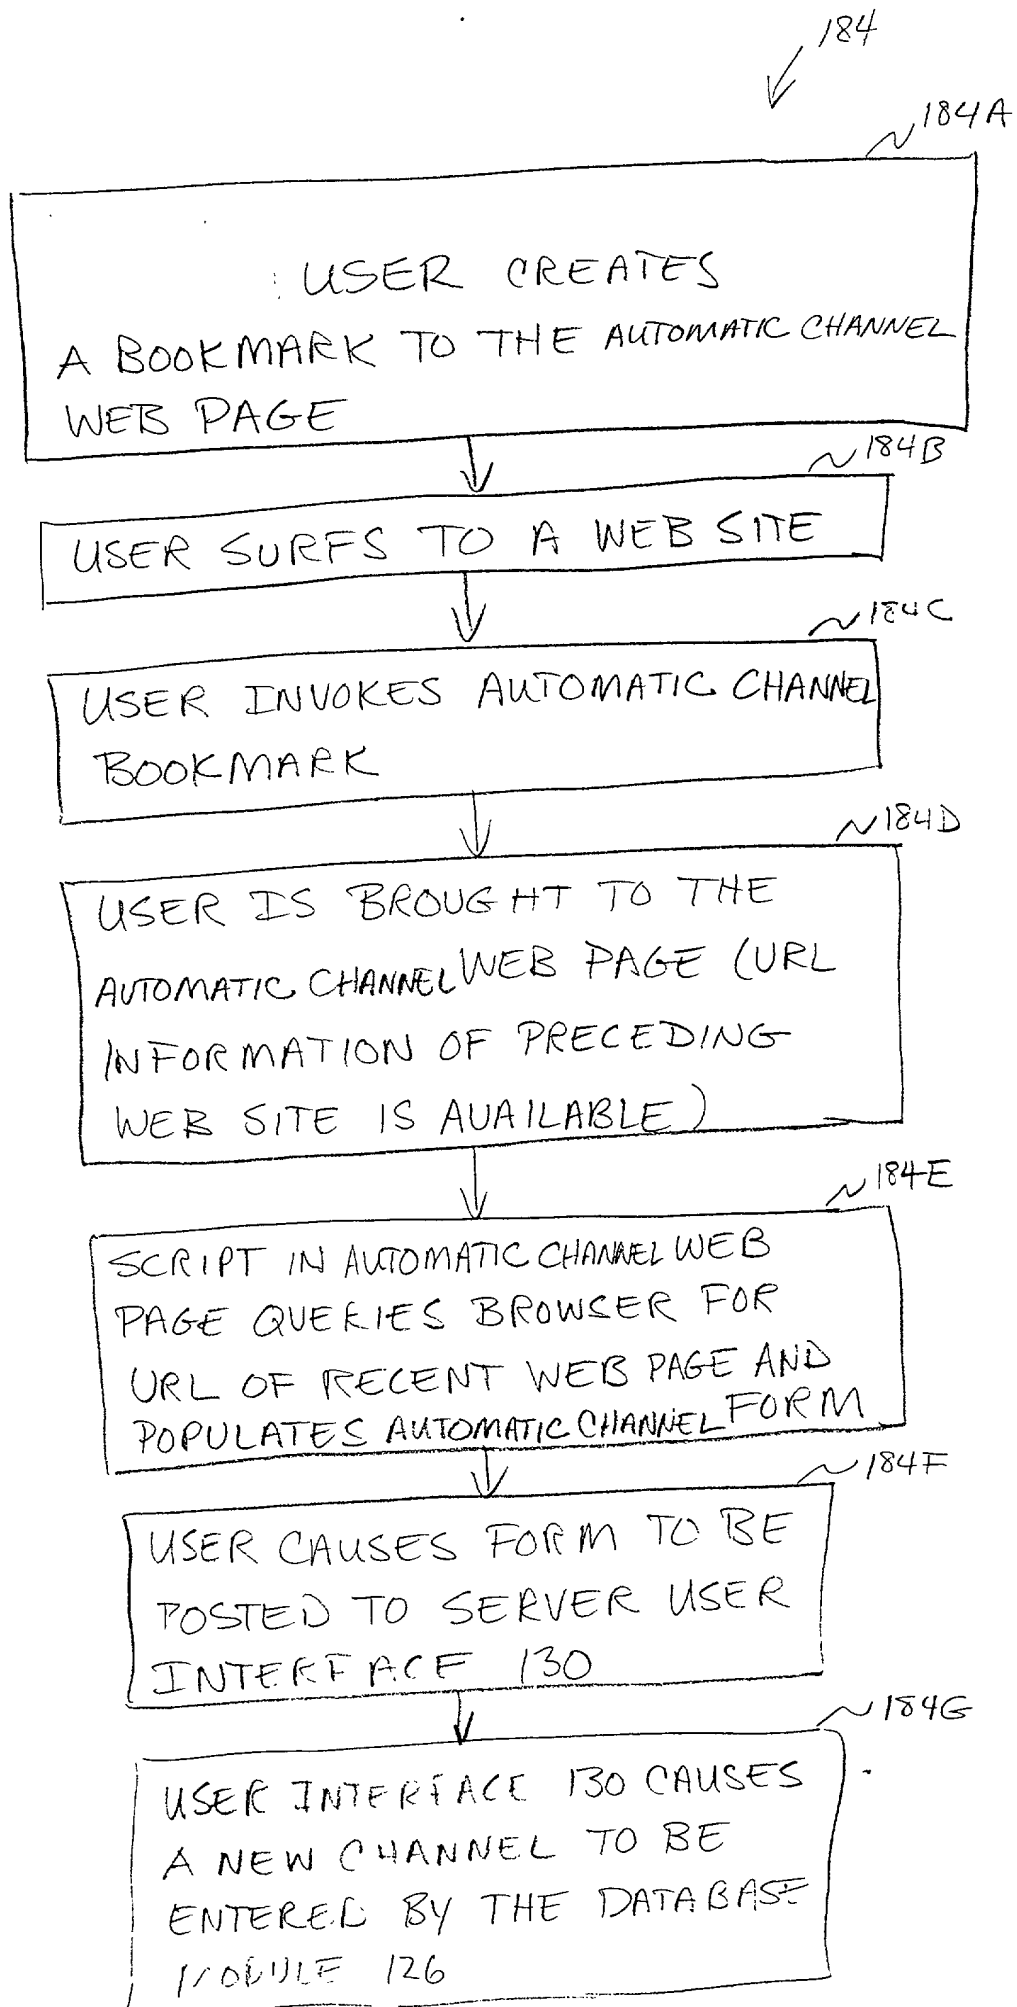 184
184A
USER CREATES
A BOOKMARK TO THE AUTOMATIC CHANNEL
WEB PAGE
184B
USER SURFS TO A WEB SITE
184C
USER INVOKES AUTOMATIC CHANNEL
BOOKMARK
184D
USER IS BROUGHT TO THE
AUTOMATIC CHANNEL WEB PAGE (URL
INFORMATION OF PRECEDING
WEB SITE IS AVAILABLE)
184E
SCRIPT IN AUTOMATIC CHANNEL WEB
PAGE QUERIES BROWSER FOR
URL OF RECENT WEB PAGE AND
POPULATES AUTOMATIC CHANNEL FORM
184F
USER CAUSES FORM TO BE
POSTED TO SERVER USER
INTERFACE 130
184G
USER INTERFACE 130 CAUSES
A NEW CHANNEL TO BE
ENTERED BY THE DATABASE
MODULE 126